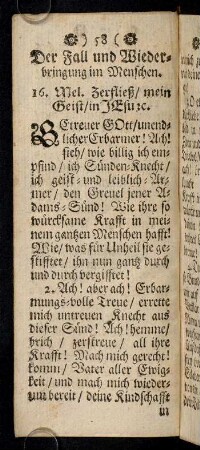 ) 58 (
Der Fall und Wieder-
bringung im Menschen.
16. Mel. Zerfließ/ mein
Geist/ in JEsu ꝛc.
GEtreuer GOtt/ unend-
licher Erbarmer! Ach!
sieh/ wie billig ich em-
pfind/ ich Sünden-Knecht/
ich geist- und leiblich-Ar-
mer/ den Greuel jener A-
dams-Sünd! Wie ihre so
würcksame Krafft in mei-
nem gantzen Menschen hafft!
Wie/ was für Unheil sie ge-
stifftet/ ihn nun gantz durch
und durch vergifftet!
2. Ach! aber ach! Erbar-
mungs-volle Treue/ errette
mich untreuen Knecht aus
dieser Sünd! Ach! hemme/
brich/ zerstreue/ all ihre
Krafft! Mach mich gerecht!
komm/ Vater aller Ewig-
keit/ und mach mich wieder-
um bereit/ deine Kindschafft
in